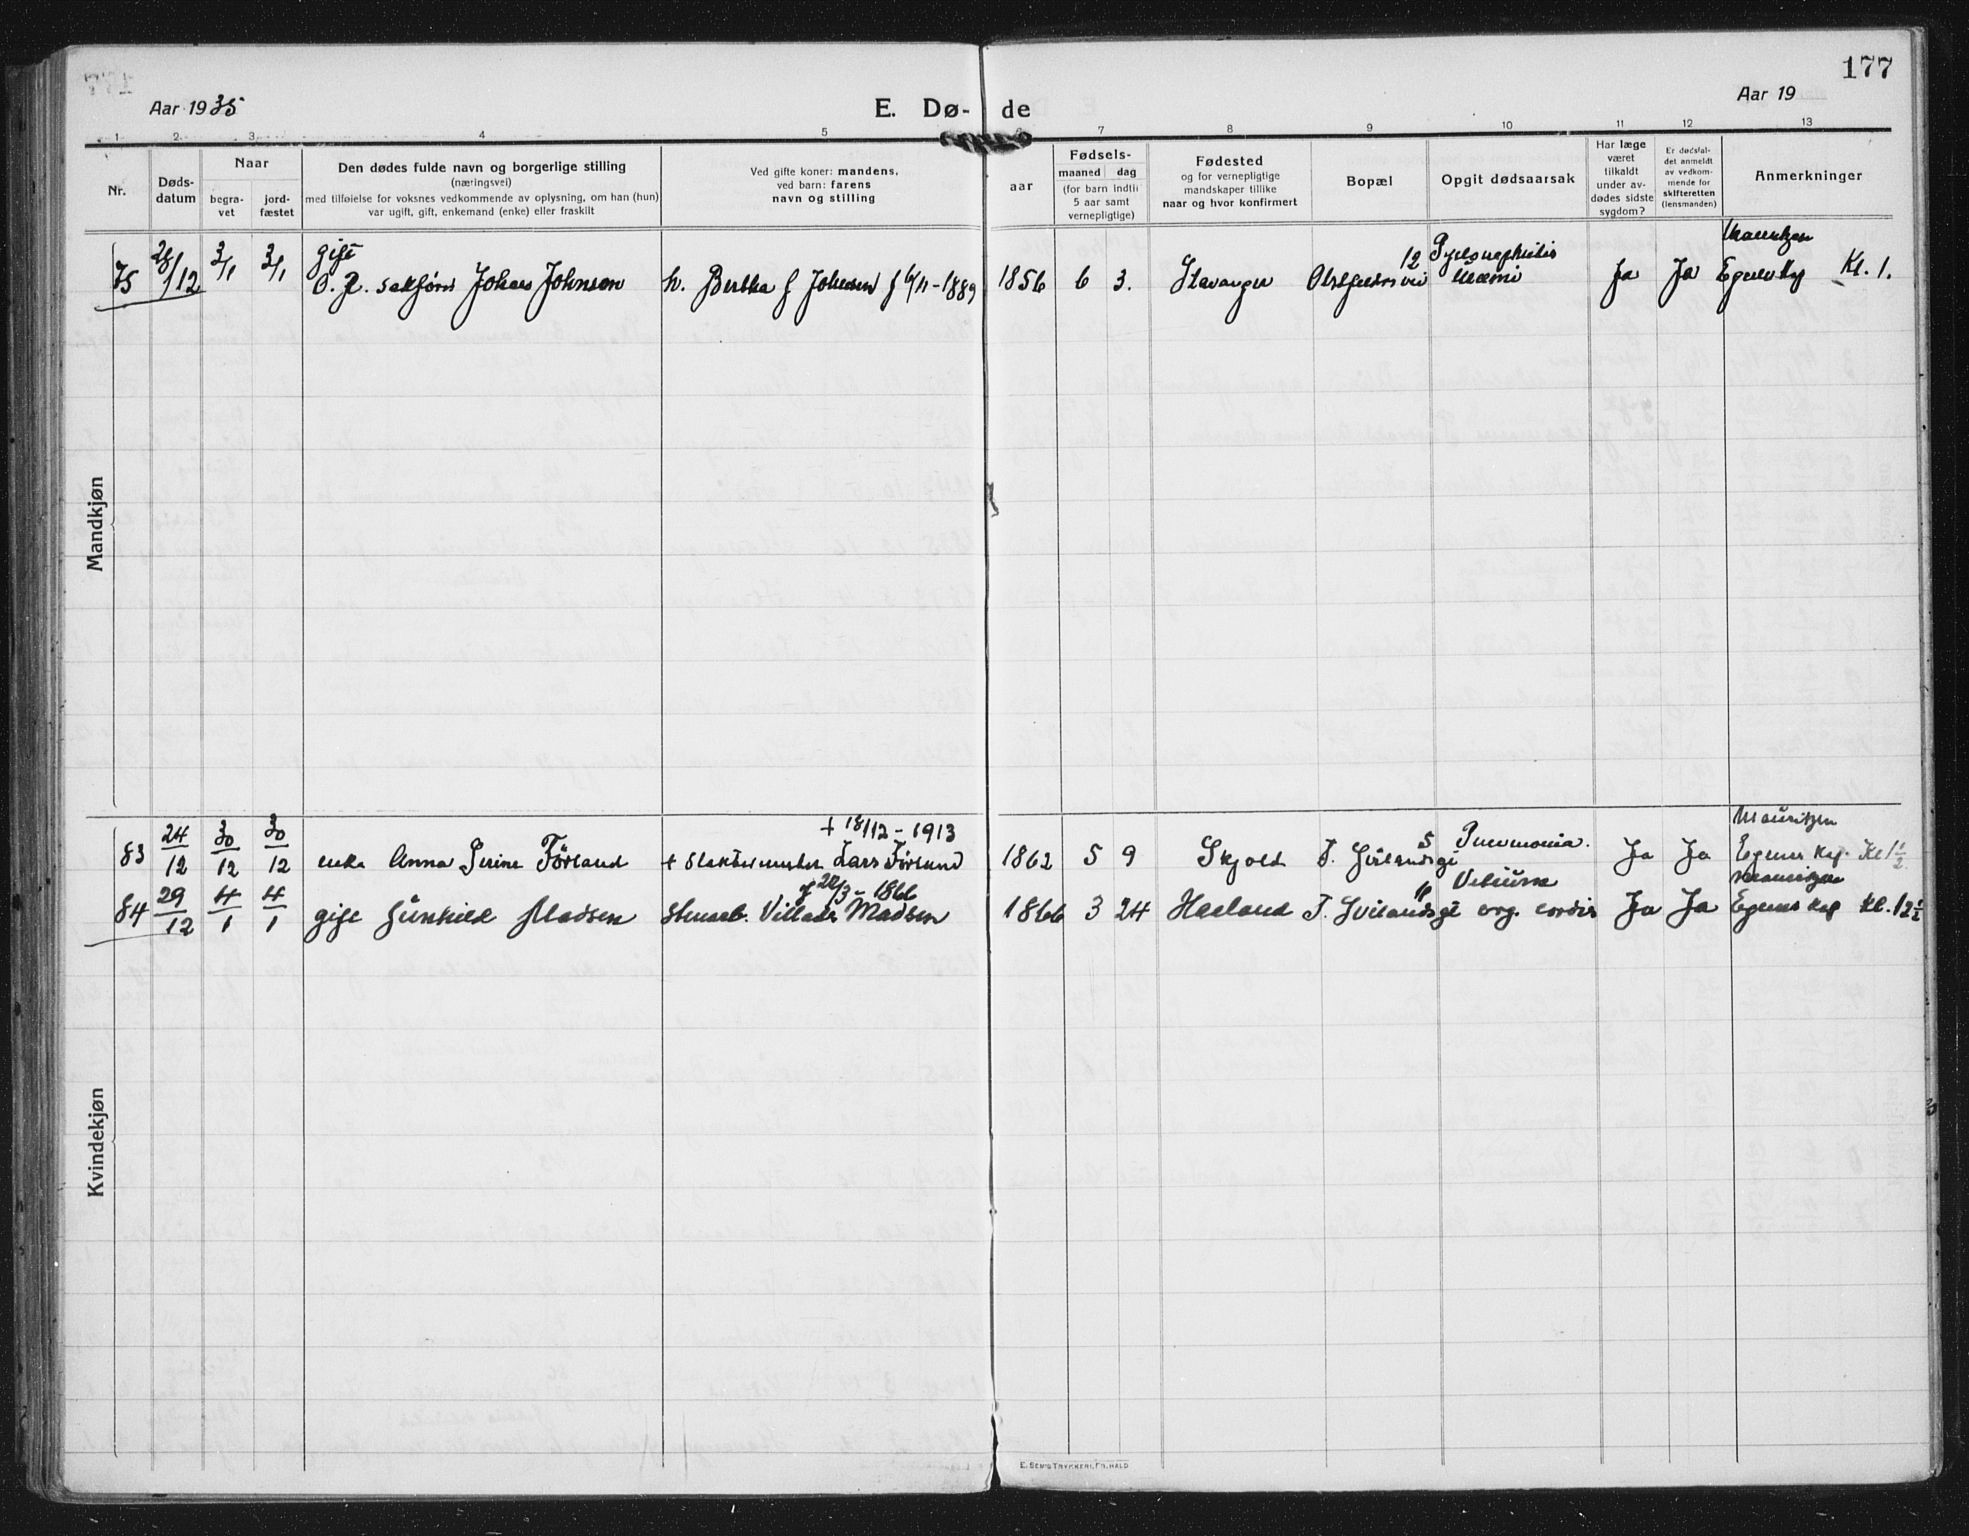 177
Aar 1935
E. Dø- de
Aar 19
1 2 3 4 5 6 7 8 9 10 11 12 13
Nr.
Døds-
datum
Naar
begra-
vet
jord-
fæstet
Den dødes fulde navn og borgerlige stilling
(næringsvei)
med tilføielse for voksnes vedkommende av oplysning, om han (hun)
var ugift, gift, enkemand (enke) eller fraskilt
Ved gifte koner: mandens,
ved barn: farens
navn og stilling
aar
Fødsels-
maaned dag
(for barn indtil
5 aar samt
vernepligtige)
Fødested
og for vernepligtige
mandskaper tillike
naar og hvor konfirmert
Bopæl
Opgit dødsaarsak
Har læge
været
tilkaldt
under av-
dødes sidste
sygdom?
Er dødsfal-
det anmeldt
av vedkom-
mende for
skifteretten
(lensmanden)
Anmerkninger
Mandkjøn
gift 12 Pyelonephritis Mauritzen
75 28/12 3/1 3/1 O.R. sakfører Johan Johnson h. Bertha f Johnsen f 6/11-1889 1856 6 3. Stavanger Uræmi Ja Ja Kl. 1.
Kvindekjøn
+ 18/12 - 1913 5 Pneumonia. Mauritzen
83 24/12 30/12 30/12 enke Anna Serine Förland + Slaktermester Lars Förland 1862 5 9 Skjold J. Hvilandsgt Ja Ja Egenes Kap. Kl 1 1/2
f 22/3 - 1866 Vitium Mauritzen
84 29/12 4/1 4/1 gift Gunhild Madsen Stenarb. Villads Madsen 1866 3 24 Haaland J. Hvilandsgt org. cordis Ja Ja Egenes Kap Kl. 12 1/2
E. SEM'S TRYKKERI, FR.HALD